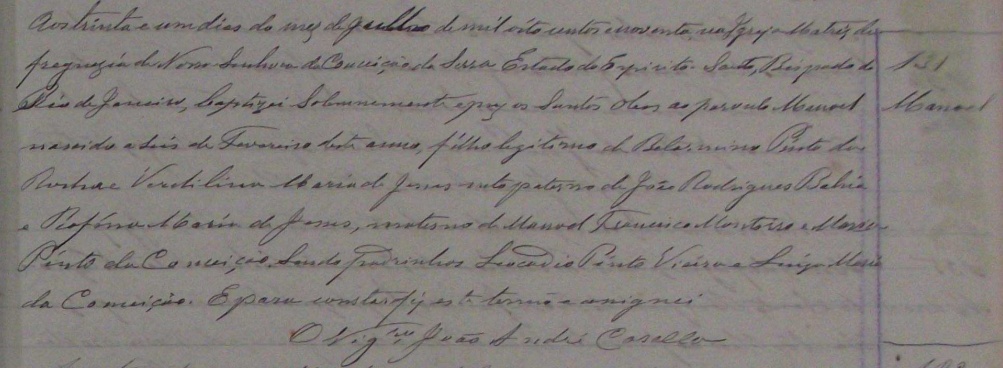 Aos trinta e um dias do mez de julho de mil oito centos e noventa, na Igreja Matriz da
freguezia de Nossa Senhora da Conceição da Serra Estado do Espirito-Santo, Bispado do
131
Rio de Janeiro, baptizei Solemnemente e puz os Santos Oleos ao parvulo Manoel
Manoel
nascido a seis de Fevereiro deste anno, filho legitimo de Belarmino Pinto da
Rocha e Verdilina Maria de Jesus neto paterno de João Rodrigues Bahia
e Maria de Jesus, materno de Manoel Francisco Monteiro e Maria
Pinto da Conceição. Sendo Padrinhos Leocadio Pinto Vieira e Luiza Maria
da Conceição. E para constar fiz este termo e assignei
O Vigrº João André Casella